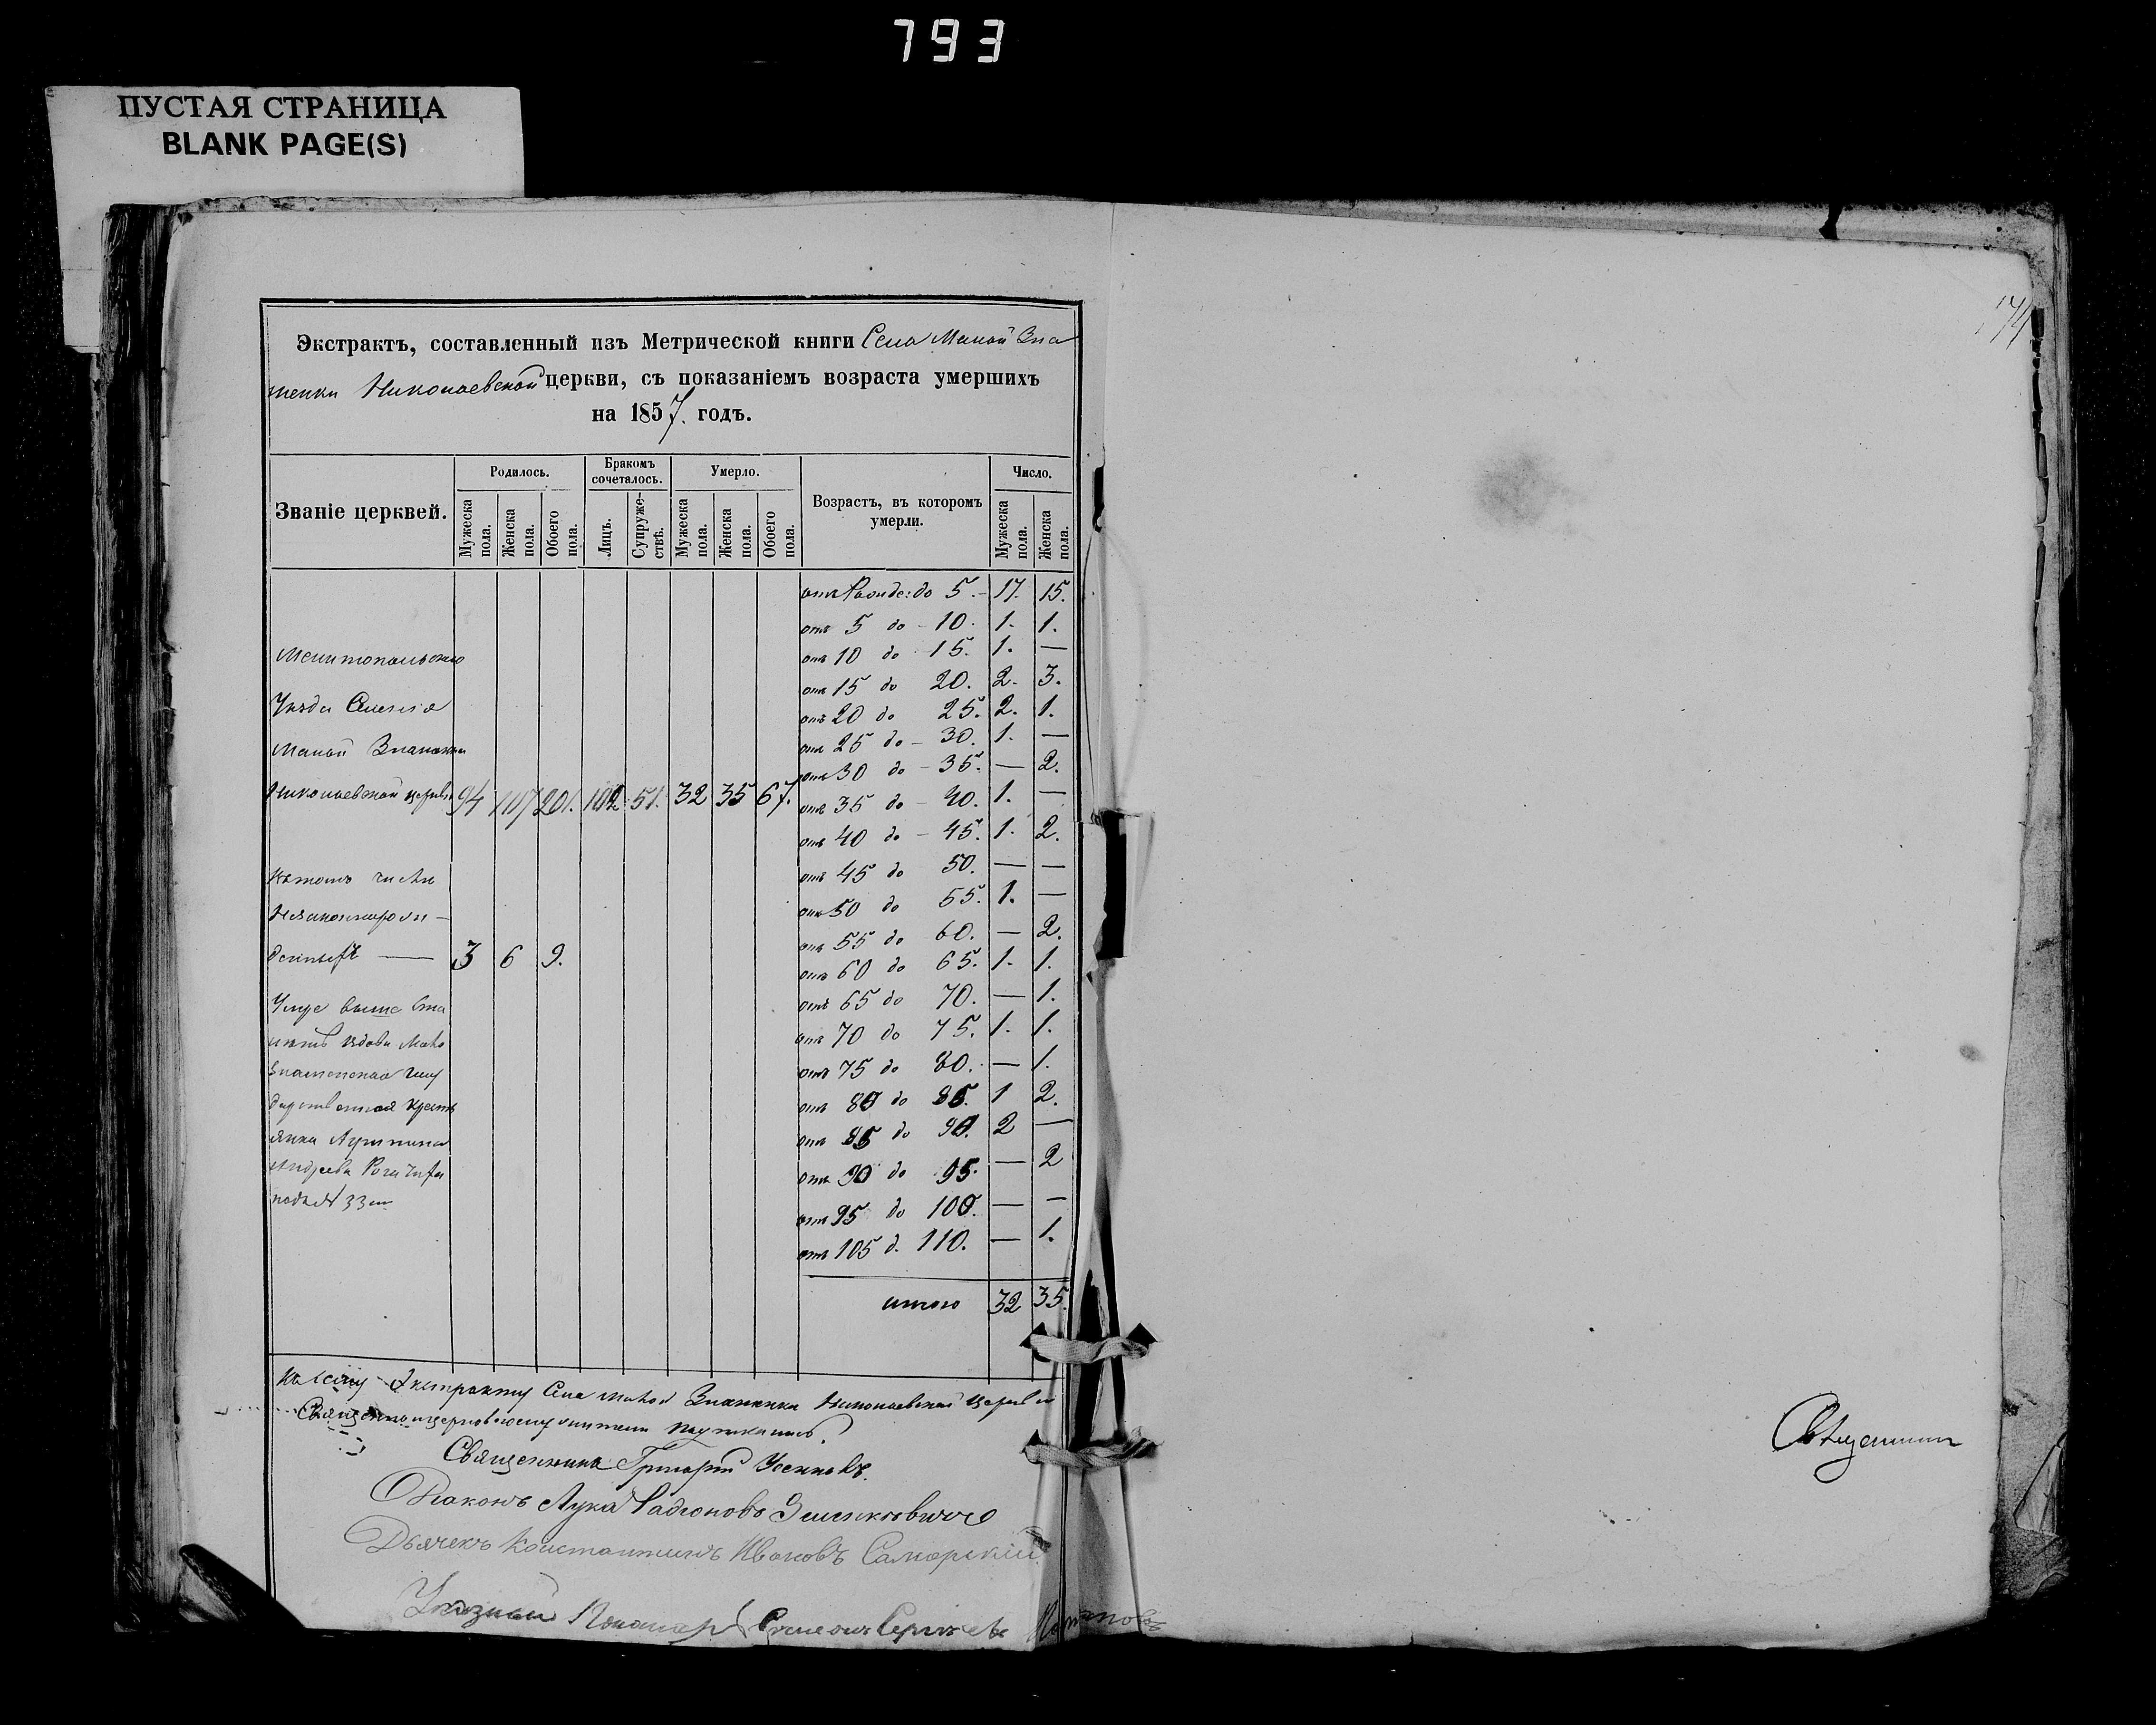 793
ПУСТАЯ СТРАНИЦА
BLANK PAGE(S)
174
Экстрактъ, составленный изъ Метрической книги Села Малой Зна
менки Николаевской церкви, съ показаніемъ возраста умершихъ
на 1857. годъ.
Званіе церквей.
Родилось.
Мужеска пола.
Женска пола.
Обоего пола.
Бракомъ сочеталось.
Лицъ.
Супружествъ.
Умерло.
Мужеска пола.
Женска пола.
Обоего пола.
Возрастъ, въ которомъ умерли.
Число.
Мужеска пола.
Женска пола.
Мелитопольскаго
Уезда Селенія
Малой Знаменки
Николаевской церкви 94 107 201. 102. 51. 32 35 67.
Въ томъ числѣ
Незаконнорож-
денныхъ — 3 6 9.
вдова Мало
Знаменская Госу
дарственная Крестъ
янка
подъ № 33
отъ Рожде: до 5. – 17. 15.
отъ 5 до – 10. 1. 1.
отъ 10 до 15. 1. —
отъ 15 до 20. 2. 3.
отъ 20 до 25. 2. 1.
отъ 25 до – 30. 1. —
отъ 30 до – 35. — 2.
отъ 35 до – 40. 1. —
отъ 40 до – 45. 1. 2.
отъ 45 до 50. — —
отъ 50 до 55. 1. —
отъ 55 до 60. — 2.
отъ 60 до 65. 1. 1.
отъ 65 до 70. — 1.
отъ 70 до 75. 1. 1.
отъ 75 до 80. — 1.
отъ 80 до 85. 1 2.
отъ 85 до 90. 2 —
отъ 90 до 95. — 2
отъ 95 до 100. — —
отъ 105 д. 110. — 1.
итого 32 35.
Къ сему Экстракту Села Малой Знаменки Николаевской Церкви
Священноцерковнослужители
Священникъ Григорій
Діаконъ Лука Радіоновъ
Дьячекъ Константинъ Ивановъ Саморскій.
Указный Пономарь Симеонъ Сергѣевъ